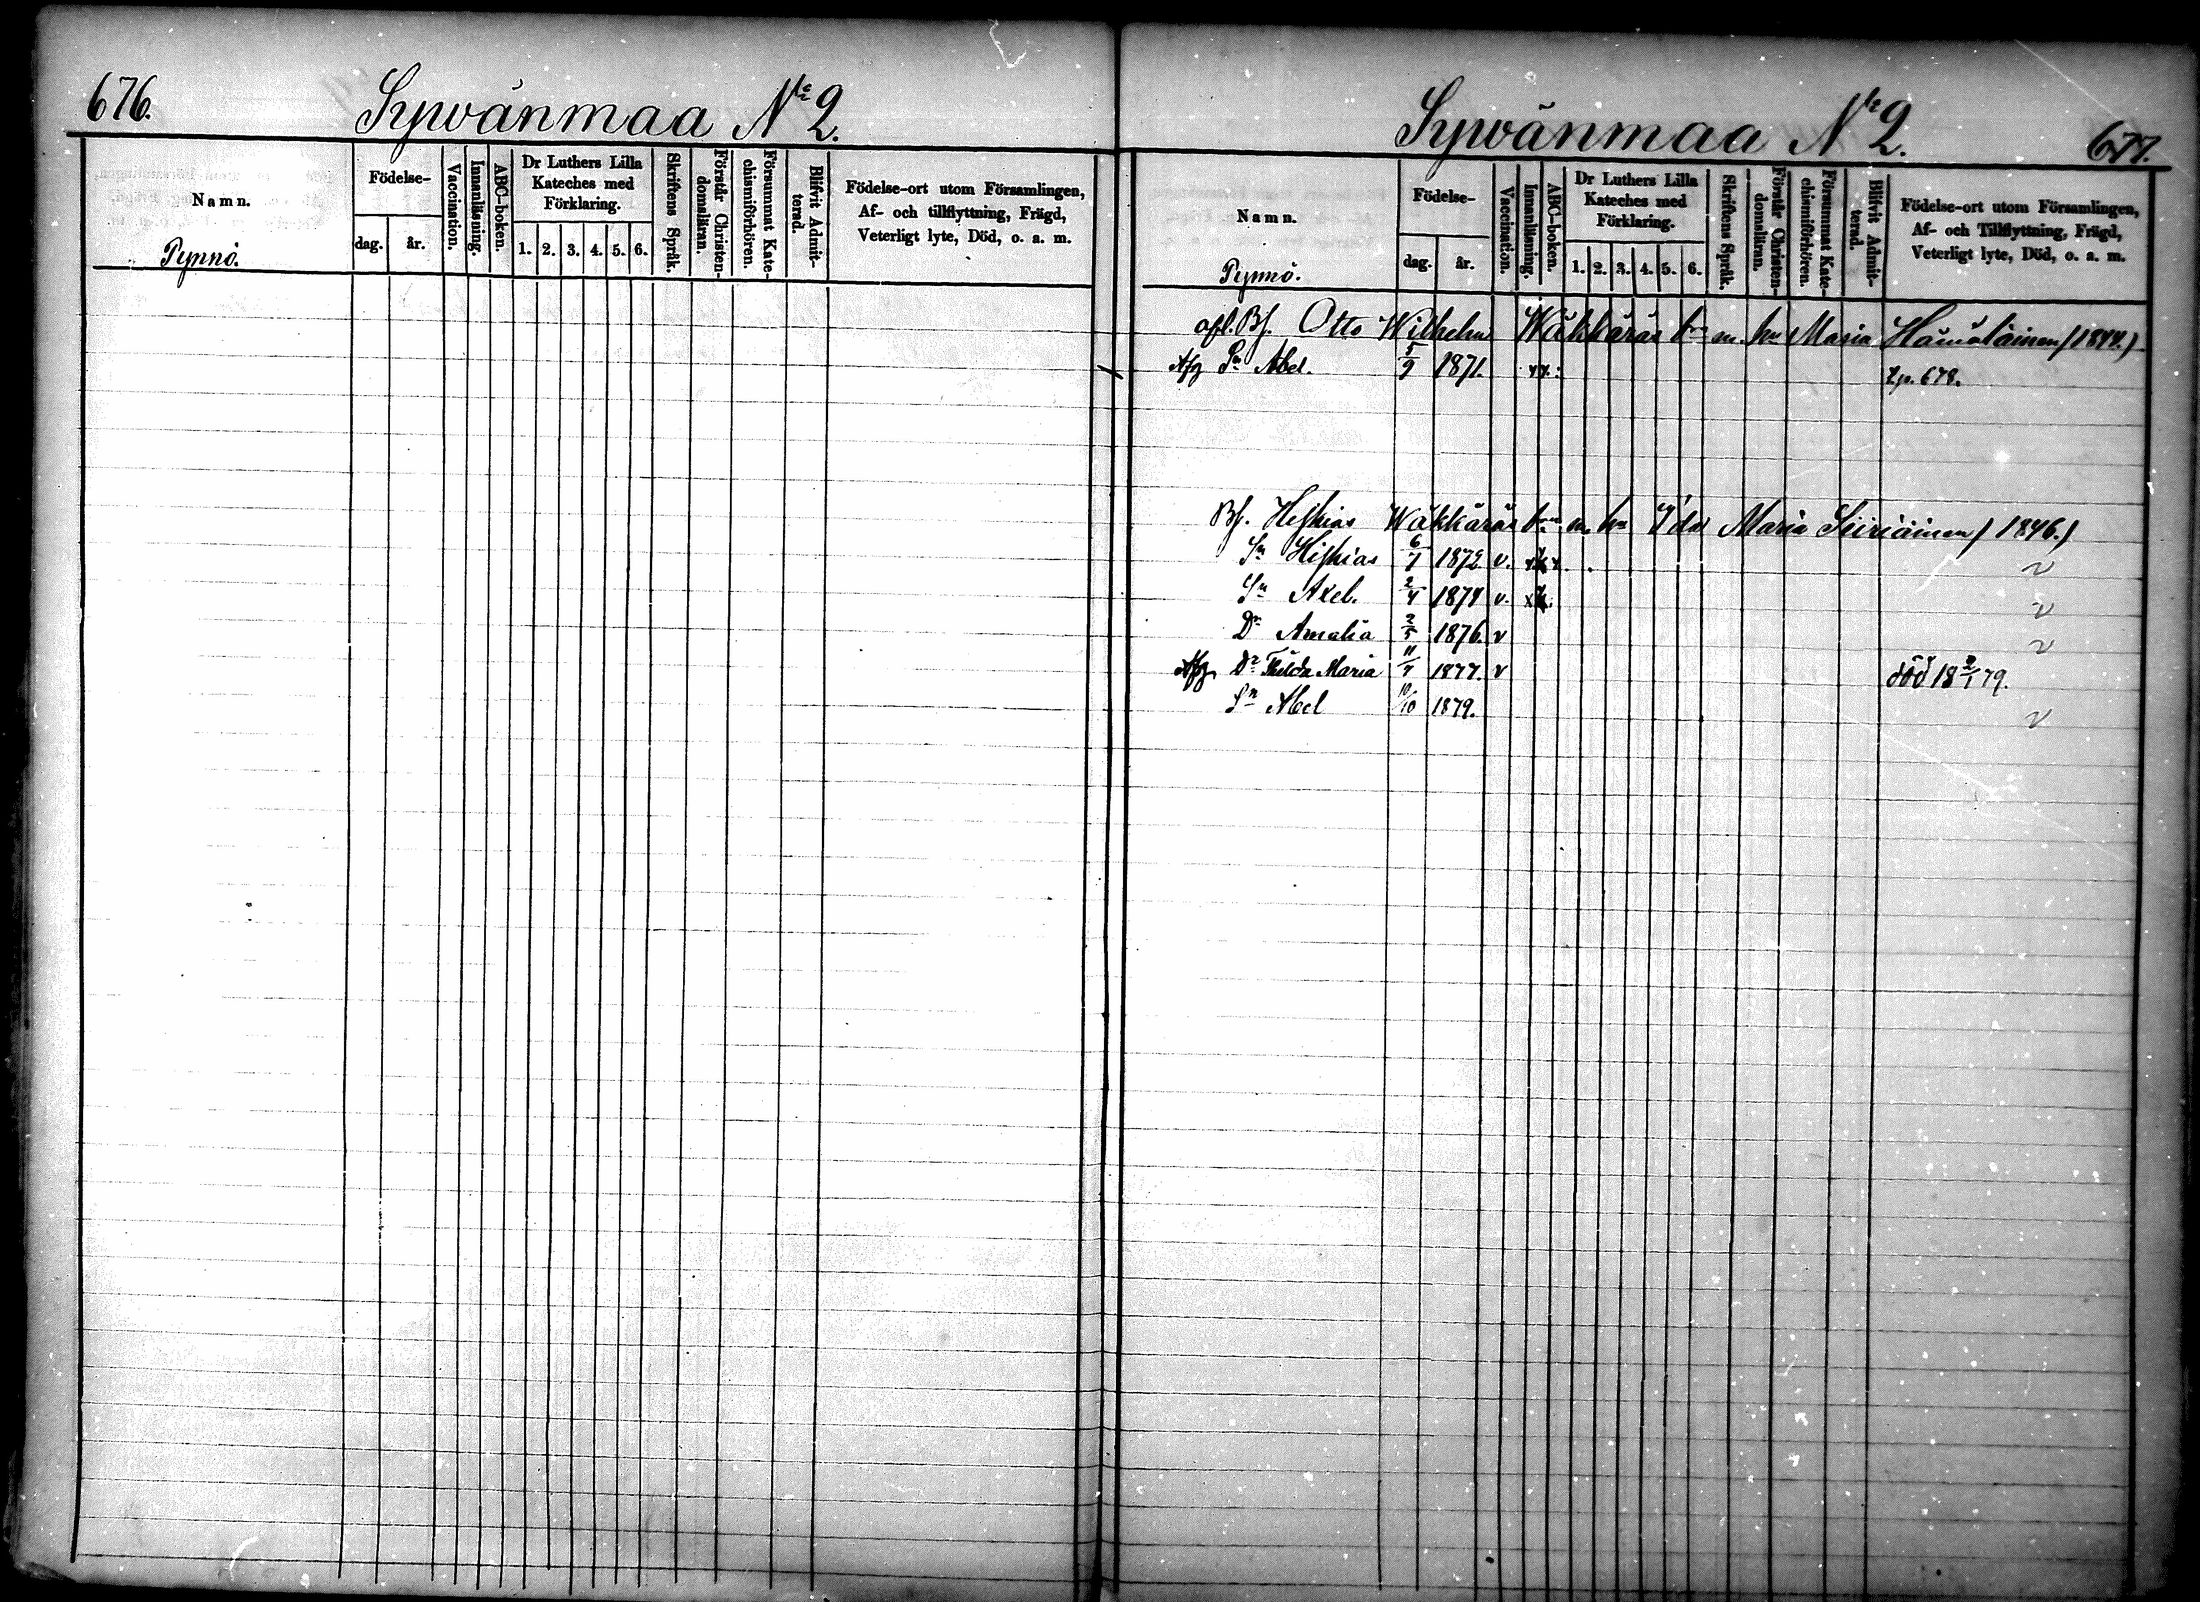 676.
Sywänmaa No 2.
Namn.
Pynnö.
Födelse-
dag.
år.
Vaccination.
Innanläsning.
ABC-boken.
Dr Luthers Lilla
Kateches med
Förklaring.
1. 2. 3. 4. 5. 6.
Skriftens Språk.
Förstår Christen-
domsläran.
Försummat Kate-
chismiförhören.
Blifvit Admit-
terad.
Födelse-ort utom Församlingen,
Af- och tillflyttning, Frägd,
Veterligt lyte, Död, o. a. m.
Sywänmaa No 2.
677.
Namn.
Pynnö.
Födelse-
dag.
år.
Vaccination.
Innanläsning.
ABC-boken.
Dr Luthers Lilla
Kateches med
Förklaring.
1. 2. 3. 4. 5. 6.
Skriftens Språk.
Förstår Christen-
domsläran.
Försummat Kate-
chismiförhören.
Blifvit Admit-
terad.
Födelse-ort utom Församlingen,
Af- och Tillflyttning, Frägd,
Veterligt lyte, Död, o. a. m.
afl. Bf. Otto Wilhelm Wäkkäräs bn m. hu Maria Hämäläinen (1844.)
Afg Sn Abel. 5/9 1871. t.p. 678.
Bf. Heskias Wäkkäräs bn m. hu Ida Maria Siiriäinen (1846.)
Sn Hiskias 6/7 1872 v. v
Sn Axel. 2/4 1874 v. v
Dr Amalia 2/5 1876. v v
Afg Dr Thilda Maria 11/7 1877. v död 18 2/1 79.
Sn Abel 10/10 1879. v